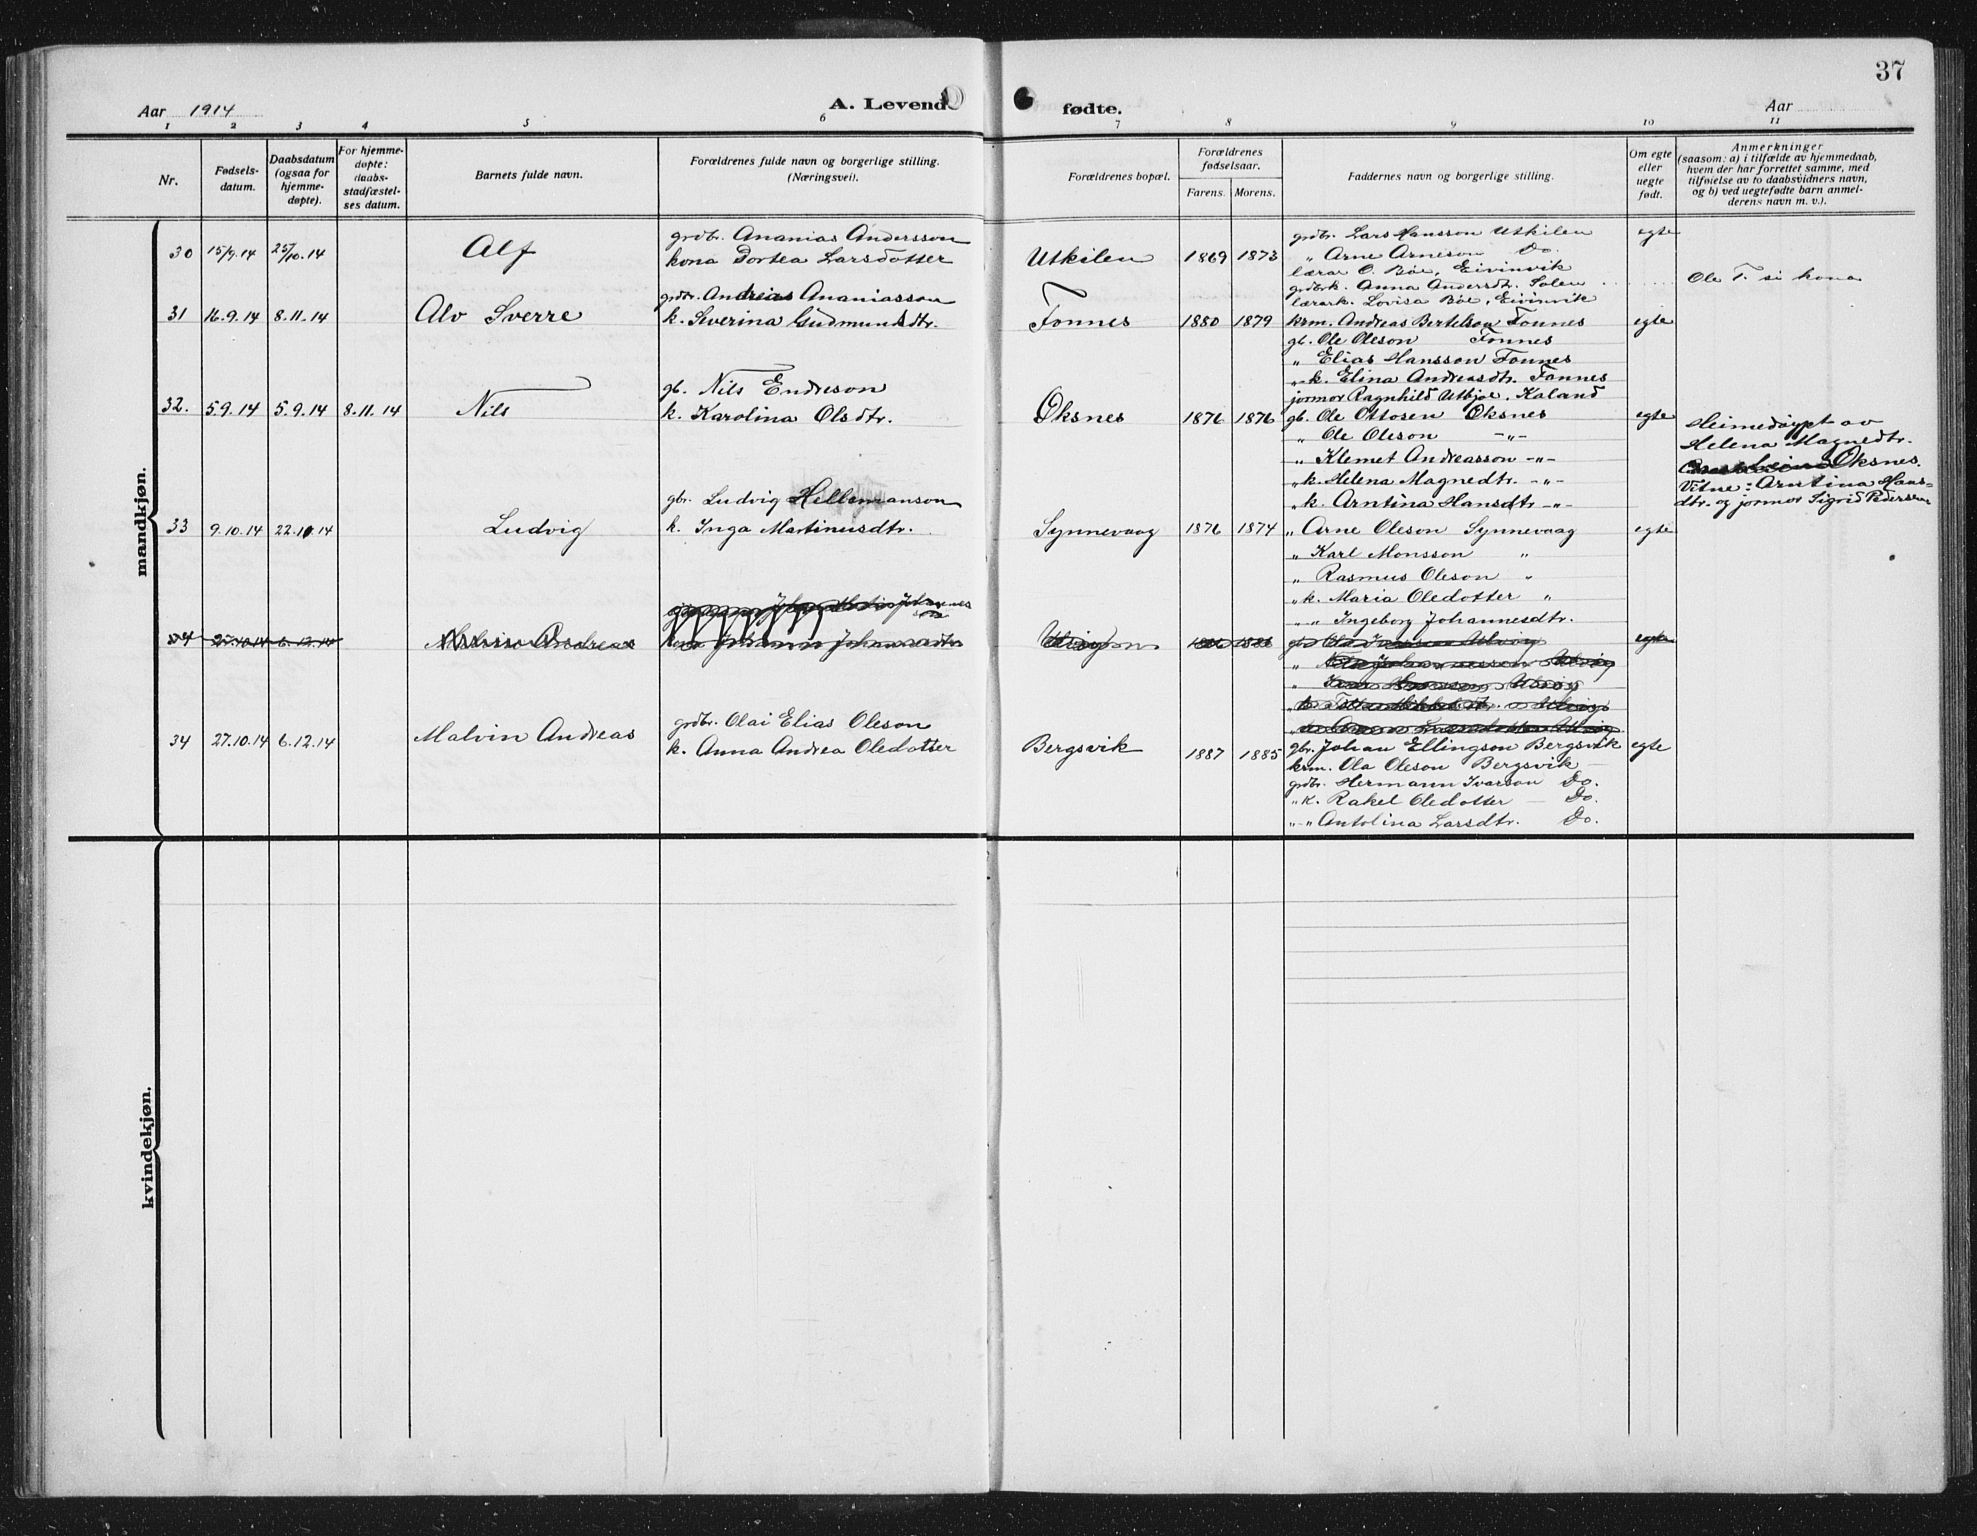 37
Aar 1914 A. Levend fødte. Aar
1 2 3 4 5 6 7 8 9 10 11
Nr.
Fødsels-
datum.
Daabsdatum
(ogsaa for
hjemme-
døpte).
For hjemme-
døpte:
daabs-
stadfæstel-
ses datum.
Barnets fulde navn.
Forældrenes fulde navn og borgerlige stilling.
(Næringsvei).
Forældrenes bopæl.
Forældrenes
fødselsaar.
Farens. Morens.
Faddernes navn og borgerlige stilling.
Om egte
eller
uegte
født.
Anmerkninger
(saasom: a) i tilfælde av hjemmedaab,
hvem der har forrettet samme, med
tilføielse av to daabsvidners navn,
og b) ved uegtefødte barn anmel-
derens navn m. v.).
mandkjøn.
30 15/9.14 25/10.14 Alf
grdbr. Ananias Andersson
kona Dortea Larsdotter
Utkilen 1869 1873
grdbr. Lars Hansson Utkilen
„ Arne Arneson Do.
lærar O. Bøe, Eivinvik
grdbrk. Anna Andersdtr. Solen
lærark. Lovisa Bøe, Eivinvik
egte
Ole T. si kona
31 16.9.14 8.11.14 Alv Sverre
grdbr. Andreas Ananiasson
k. Severina Gudmundsdtr.
Fonnes 1880 1879
krm. Andreas Bertelson Fonnes
gb. Ole Oleson Fonnes
„ Elias Hansson Fonnes
„ k. Elina Andreasdtr. Fonnes
jormor Ragnhild Utbjoe. Kaland
egte
32. 5.9.14 5.9.14 8.11.14 Nils
gb. Nils Endreson
k. Karolina Olsdtr.
Oksnes 1876 1876
gb. Ole Ottosen Oksnes
„ Ole Oleson -„-
„ Klemet Andreasson -„-
„ k. Helena Magnedtr. -„-
„ k. Arntina Hansdtr -„-
egte
Heimedøypt av
Helena Magnedtr.
Oksnes.
Vitne: Arntina Hans-
dtr. og jormor Sigrid Pedersen
33 9.10.14 22.10.14 Ludvig
gbr. Ludvig Hellemanson
k. Inga Martinusdtr.
Synnevaag 1876 1874
„ Arne Oleson Synnevaag
„ Karl Monsson „
„ Rasmus Oleson „
„ k. Maria Oledotter „
„ „ Ingeborg Johannesdtr.
egte
34 27.10.14 6.12.14 Malvin Andreas
egte
34 27.10.14 6.12.14 Malvin Andreas
grdbr. Olai Elias Oleson
k. Anna Andrea Oledotter
Bergsvik 1887 1885
gbr. Johan Ellingson Bergsvik
krm. Ola Oleson Bergsvik
grdbr. Hermann Ivarson Do.
„ k. Rakel Oledotter Do.
„ „ Antolina Larsdtr. Do.
egte
kvindekjøn.